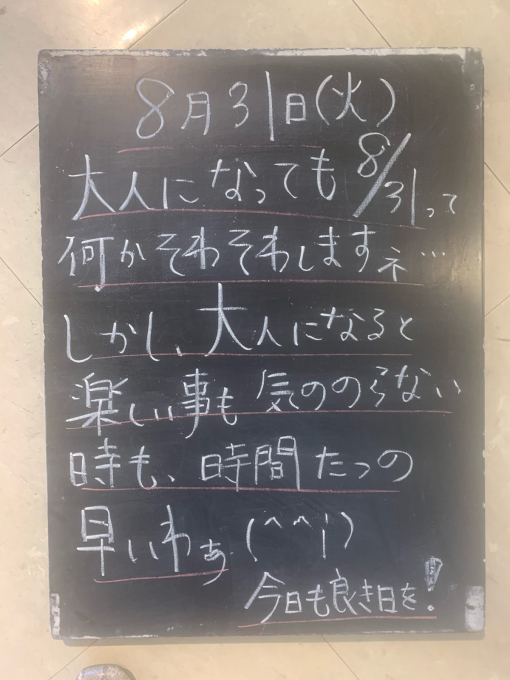 8月31日(火)
大人になっても8/31って
何かそわそわしますネ…
しかし、大人になると
楽しい事も気ののらない
時も、時間たつの
早いわぁ(^^;)
今日も良き日を!